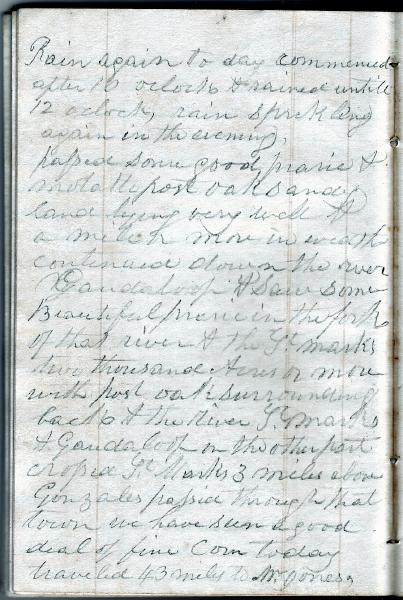 Rain again to day commenced
after 10 oclock & rained untill
12 oclock, rain sprinkling
again in the evening,
passed some good prarie &
molatto post oak sandy
land lying very well &
a more in width
continued down the river
Gaudaloop & saw some
Beautiful prarie in the fork
of that river & the St marks
two thousand Acres or more
with post oak surrounding
back & the River St marks
& Gaudaloop on the other part
crossed St Marks 3 miles above
Gonzales passed through that
town we have seen a good
deal of fine Corn to day
traveled 43 miles to Mr Jones,